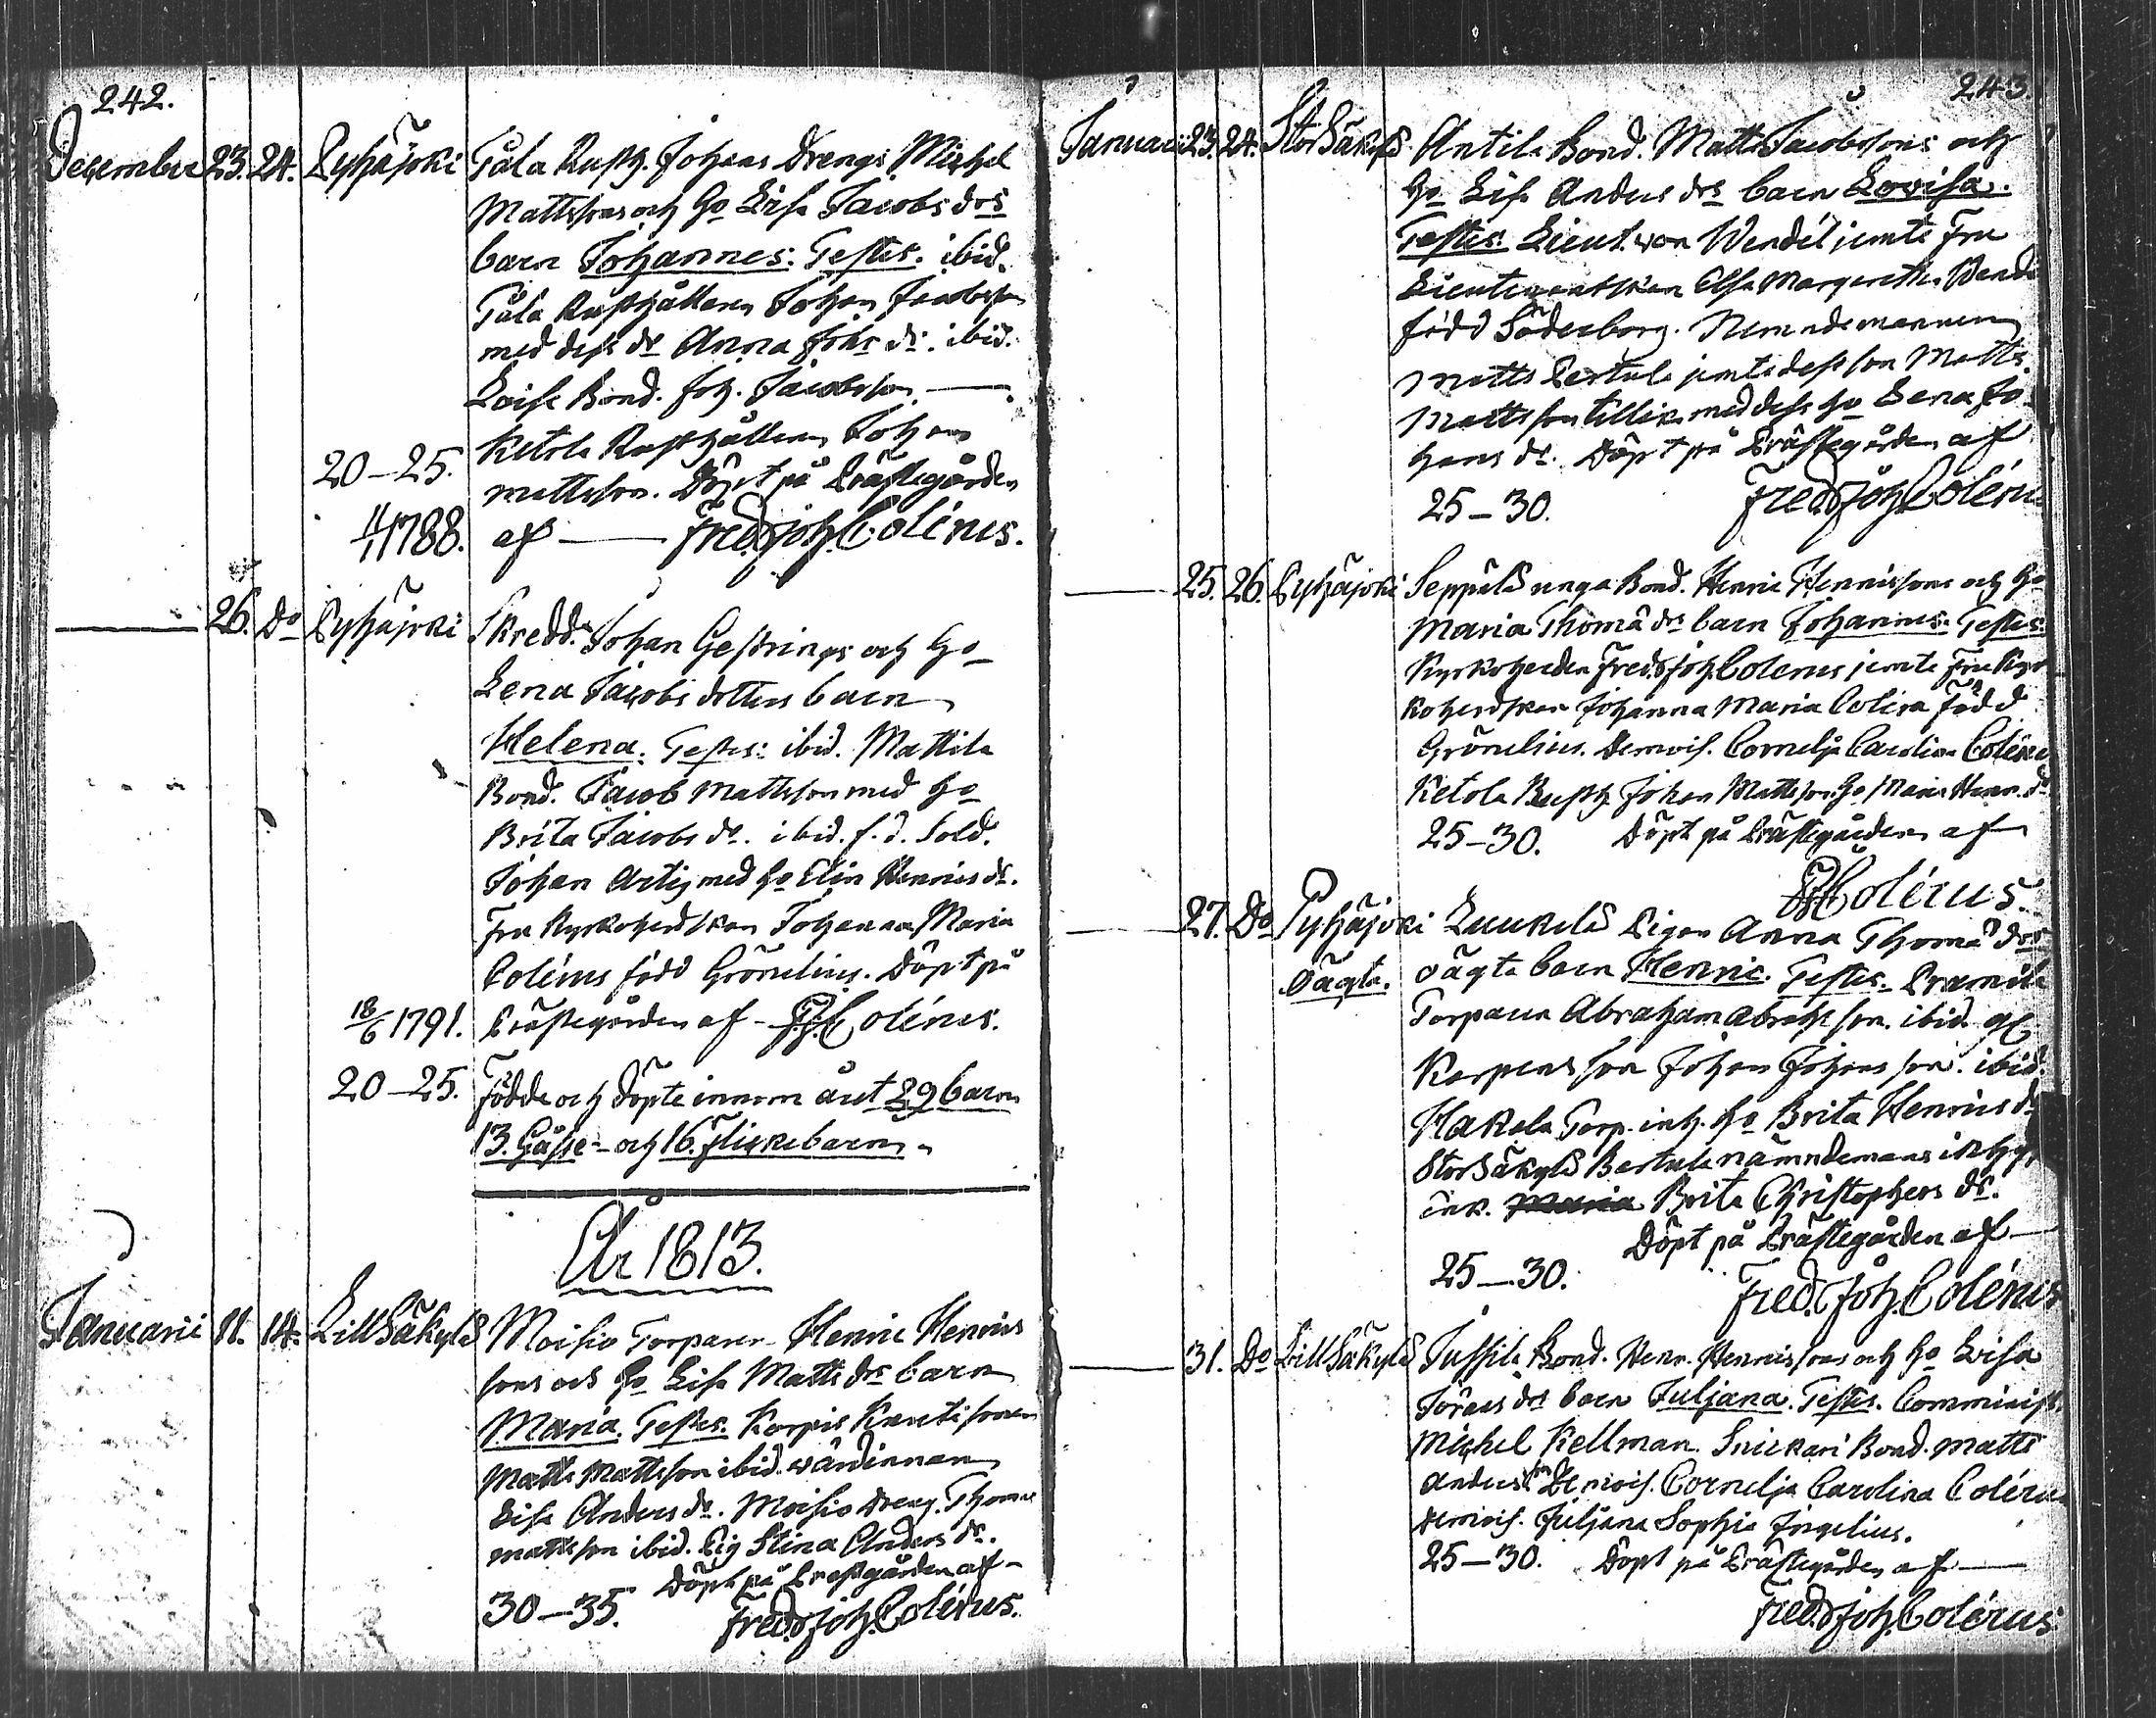 242.
December 23. 24. Pyhäjoki Tåla Rusth. Johans Drengs Michel
Mattssons och Ho Lisa Jacobs drs
barn Johannes. Testes. ibid.
Tåla Rusthållaren Johan Jacobsson
med dess dr Anna Johs dr. ibid.
Bond. Joh. Jacobsson. —
Ketola Rusthållaren Johan
20–25. Mattsson. Döpt på Prästegården
1788. af — Fred. Joh. Colérus.
— 26. Do Pyhäjoki Skredd. Johan Gestrings och Ho
Lena Jacobs dotters barn
Helena. Testes: ibid. Mattila
Bond. Jacob Mattsson med Ho
Brita Jacobs dr. ibid. f. d. Sold.
Johan Artig med Ho Elin Henrics dr.
Fru Kyrkoherdskan Johanna Maria
Colérus född Grönelius. Döpt på
18/6 1791. Prästegården af – F. J. Colérus.
20–25. Födde och döpte innom året 29 barn
13. Gåsse- och 16. flickebarn.
År 1813.
Januarii 11. 14. LillSäkylä Moisio Torparen Henric Henrics
sons och Ho Lisa Matts drs barn
Maria. Testes. Korpis
Matts Mattsson ibid. wärdinnan
Lisa Anders dr. Moisio Dreng. Thomas
Mattsson ibid. Pig Stina Anders dr.
Döpt på Prestgården af –
30–35. Fred. Joh. Colérus.
243.
Januarii 23. 24. StorSäkylä Antila Bond. Matts Jacobssons och
Ho Lisa Anders drs barn Lovisa.
Testes. Lieut. von Wendél jemte Fru
Lieutenantskan Elsa Margaretha
född Söderborg. Nemndemannen
Matts Bertula jemte dess son Matts
Mattsson tillika med dess Ho Lena Jo-
hans dr. Döpt på Prästegården af
25–30. Fred. Joh. Colérus
— 25. 26. Pyhäjoki Seppälä unga Bond. Henric Henricssons och Ho
Maria Thomä drs barn Johannes. Testes:
Kyrkoherden Fred. Joh. Colerus jemte Fru Kyr-
koherdskan Johanna Maria Colera född
Grönelius. Demois. Cornelja Carolina Coléra
Ketola Rusth. Johan Mattsson Ho Maria Henr. dr
25–30. Döpt på Prästegården af
F. J. Colérus.
— 27. Do Pyhäjoki Luukela Pigan Anna Thomä drs
oägta. oägta barn Henric. Testes.
Torparen Abraham Abrahsson. ibid.
son Johan Johansson. ibid.
Hakala Torp. inh. Ho Brita Henrics dr
StorSäkylä Bertula nämndemans
Brita Christophers dr.
Döpt på Prästegården af —
25–30. Fred. Joh. Colérus
— 31. Do LillSäkylä Jussila Bond. Henr. Henricssons och Ho Lisa
Jörans drs barn Juljana. Testes. Comminist.
Michel Kellman. Snickari Bond. Matts
Anderssn Demois. Cornelja Carolina Coléra
Demois. Juljana Sophia Ingelius.
25–30. Döpt på Prästegården af —
Fred. Joh. Colérus